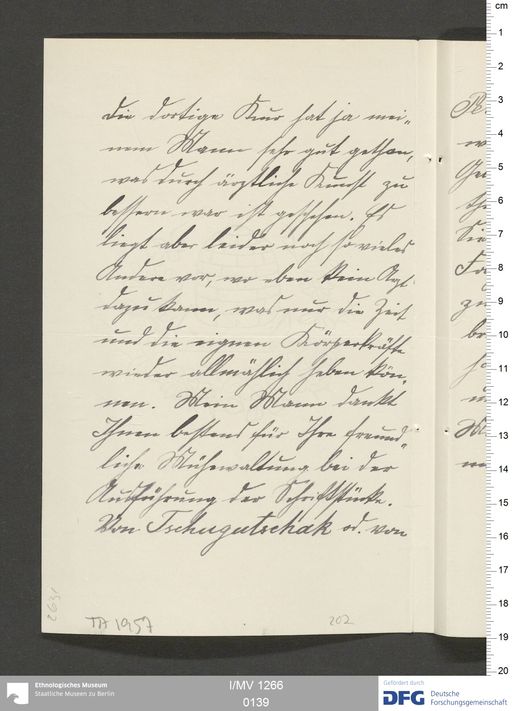 Die dortige Kur hat ja mei-
nem Mann sehr gut gethan,
was durch ärztliche Kunst zu
bessern war ist geschehen. Es
liegt aber leider noch so vieles
Andere vor, wo eben kein Arzt
dazu kann, was nur die Zeit
und die eignen Körperkräfte
wieder allmählich heben kön-
nen. Mein Mann dankt
Ihnen bestens für Ihre freund-
liche Mühewaltung bei der
Ausführung der Schriftstücke.
Von Tschugutschak od. von
2631
TA 1957
202
cm
1
2
3
4
5
6
7
8
9
10
11
12
13
14
15
16
17
18
19
20
Ethnologisches Museum
Staatliche Museen zu Berlin
I/MV 1266
0139
Gefördert durch
DFG Deutsche
Forschungsgemeinschaft